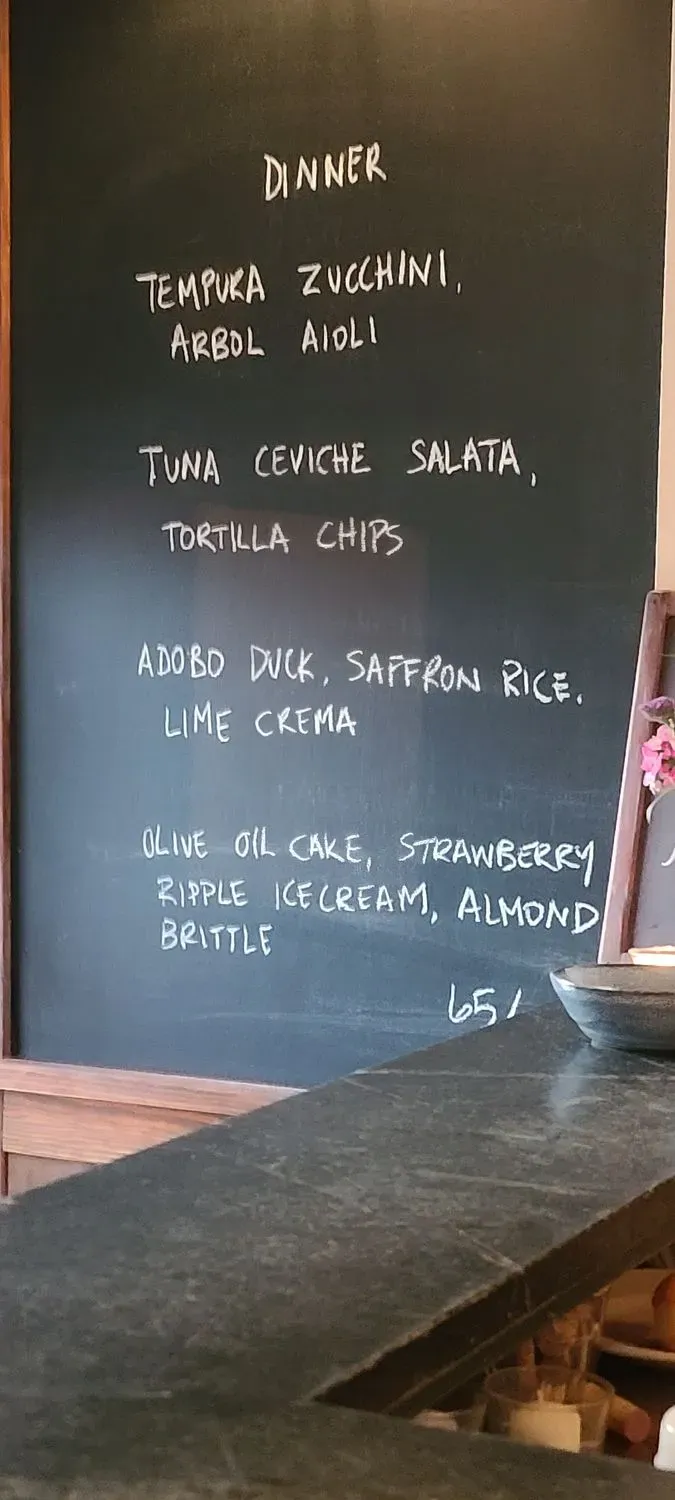 DINNER
TEMPURA ZUCCHINI,
ARBOL AIOLI
TUNA CEVICHE SALATA,
TORTILLA CHIPS
ADOBO DUCK, SAFFRON RICE,
LIME CREMA
OLIVE OIL CAKE, STRAWBERRY
RIPPLE ICECREAM, ALMOND
BRITTLE
65/